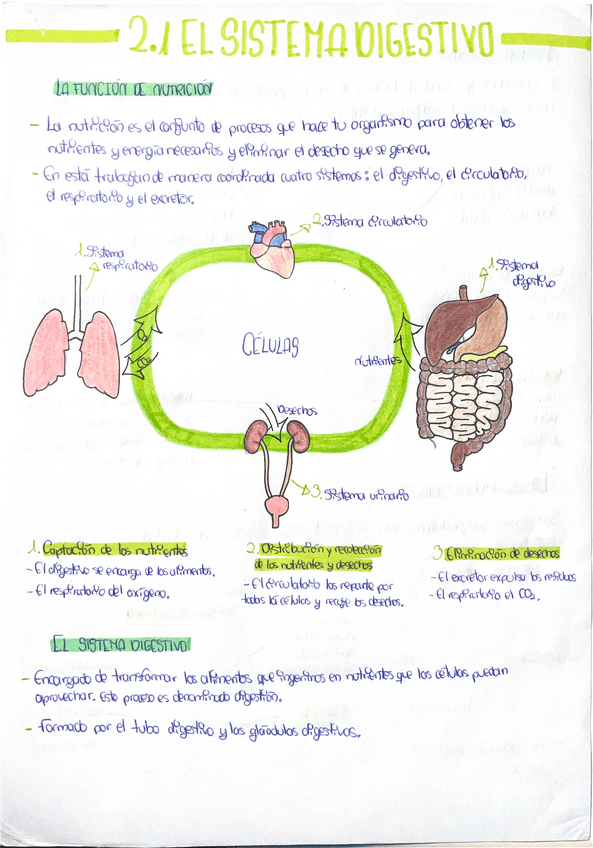 2.1 EL SISTEMA DIGESTIVO
LA FUNCIÓN DE NUTRICIÓN
- La nutrición es el conjunto de procesos que hace tu organismo para obtener los
nutrientes y energía necesarios y eliminar el desecho que se genera.
- En está trabajan de manera coordinada cuatro sistemas: el digestivo, el circulatorio,
el respiratorio y el excretor.
2. Sistema circulatorio
1. Sistema
respiratorio
1. Sistema
digestivo
O2
CO2
CÉLULAS
nutrientes
Desechos
3. Sistema urinario
1. Captación de los nutrientes
- El digestivo se encarga de los alimentos.
- El respiratorio del oxígeno.
2. Distribución y recolección
de los nutrientes y desechos
- El circulatorio las reparte por
todas la células y recoge los desechos.
3. Eliminación de desechos
- El excretor expulsa los residuos
- El respiratorio el CO2.
EL SISTEMA DIGESTIVO
- Encargado de transformar los alimentos que ingerimos en nutrientes que las células puedan
aprovechar. Este proceso es denominado digestión.
- Formado por el tubo digestivo y las glándulas digestivas.